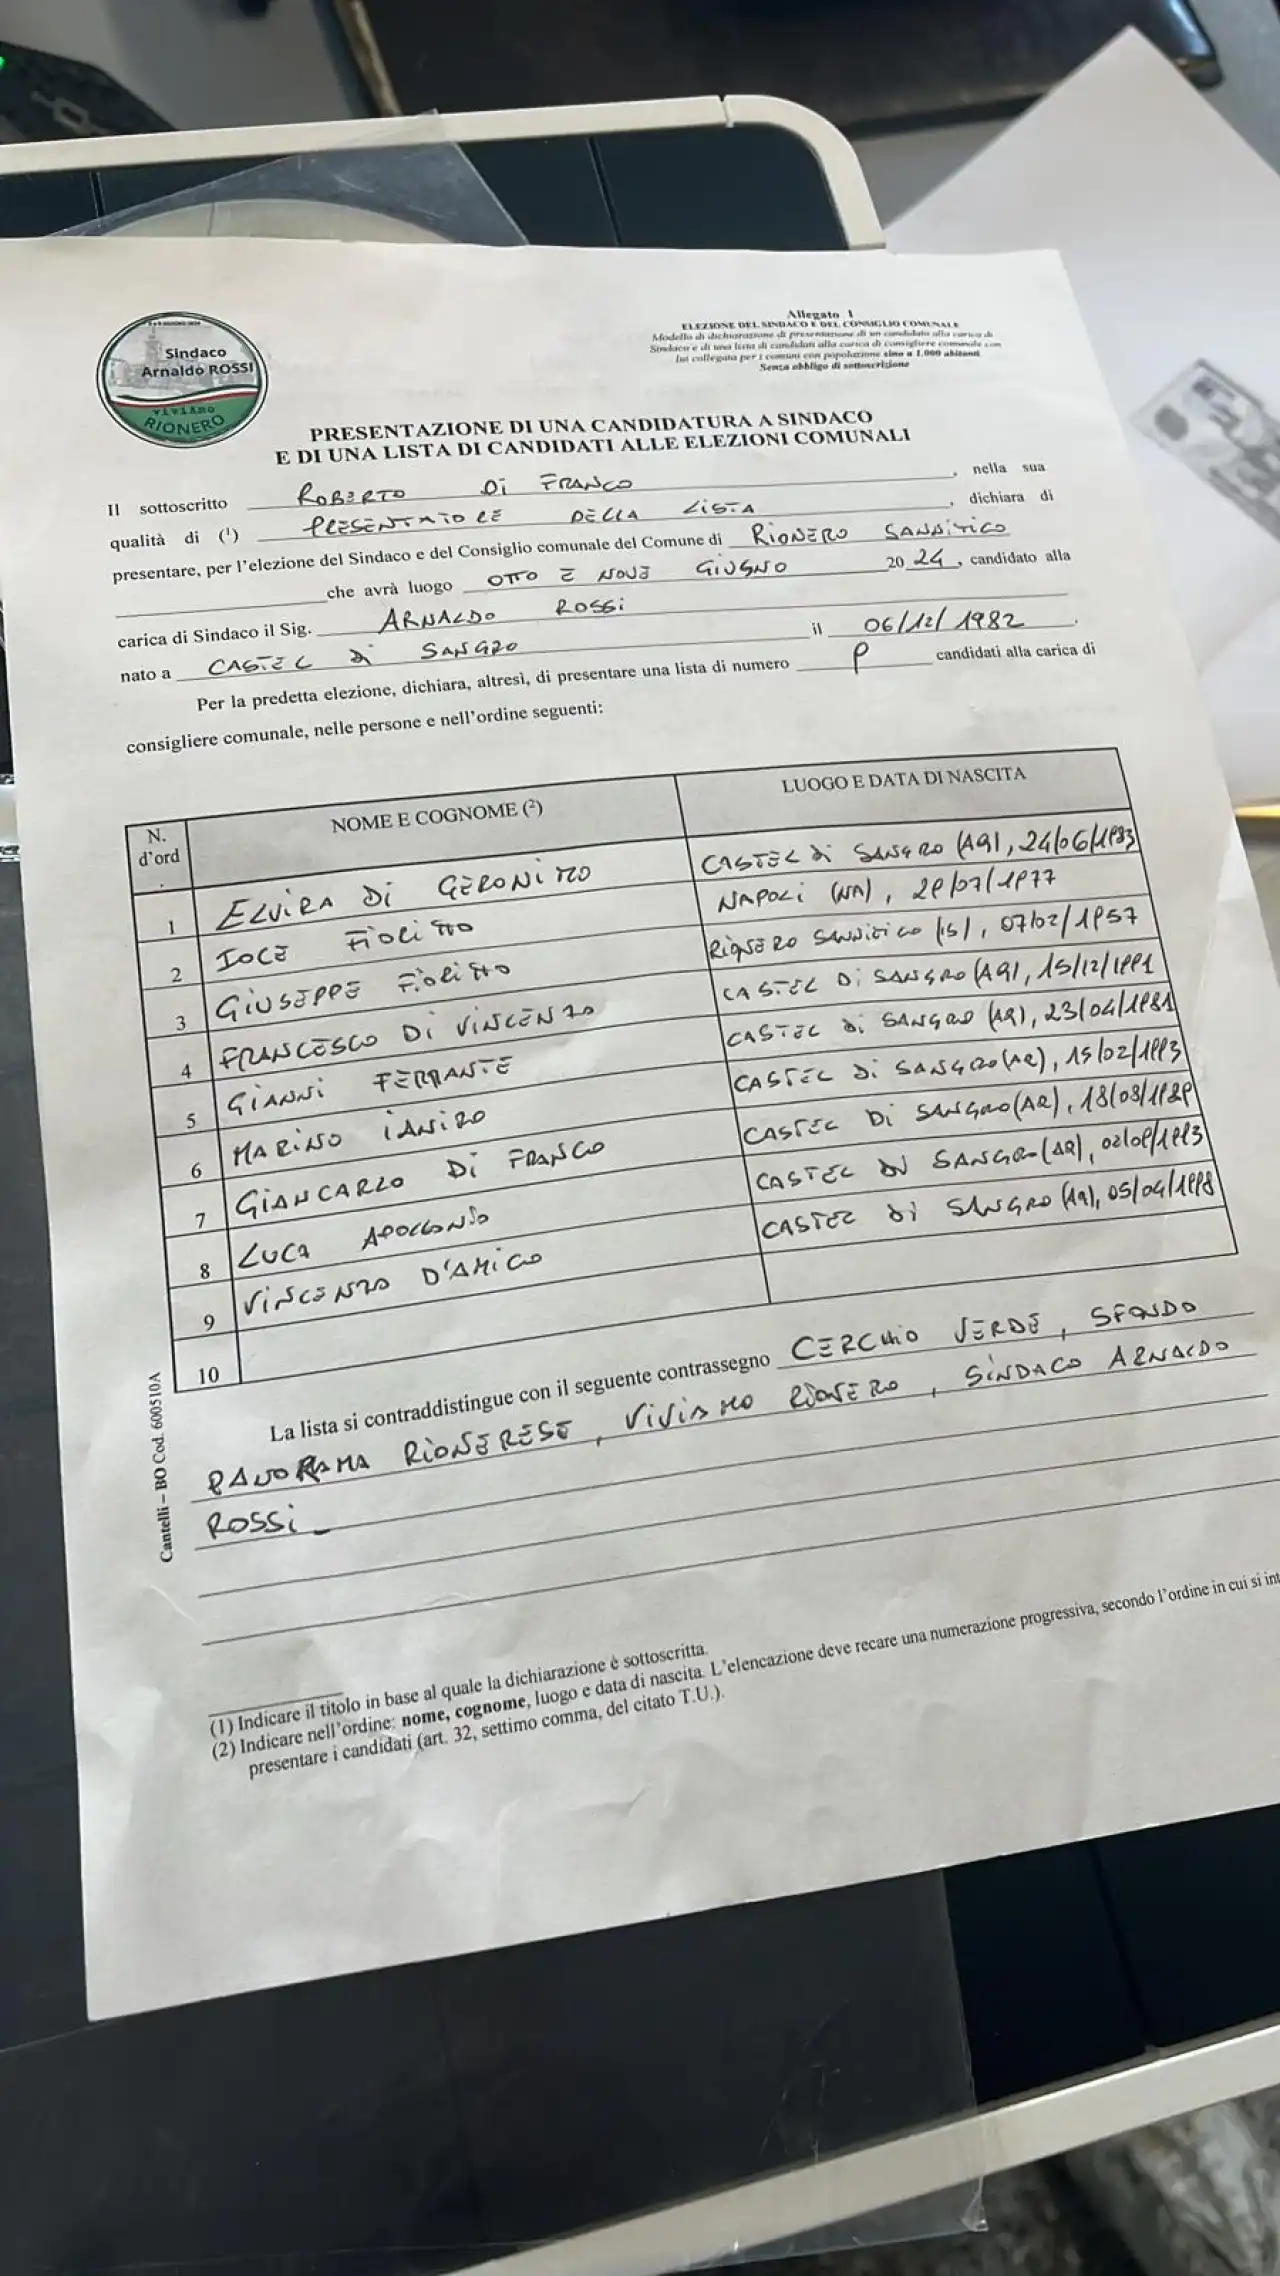 Sindaco
Arnaldo ROSSI
VIVIAMO
RIONERO
Allegato 1
ELEZIONE DEL SINDACO E DEL CONSIGLIO COMUNALE
Modello di dichiarazione di presentazione di un candidato alla carica di
Sindaco e di una lista di candidati alla carica di consigliere comunale con
lui collegata per i comuni con popolazione sino a 1.000 abitanti
Senza obbligo di sottoscrizione
PRESENTAZIONE DI UNA CANDIDATURA A SINDACO
E DI UNA LISTA DI CANDIDATI ALLE ELEZIONI COMUNALI
Il sottoscritto ROBERTO DI FRANCO, nella sua
qualità di (1) PRESENTATORE DELLA LISTA, dichiara di
presentare, per l'elezione del Sindaco e del Consiglio comunale del Comune di RIONERO SANNITICO
che avrà luogo OTTO E NOVE GIUGNO 2024, candidato alla
carica di Sindaco il Sig. ARNALDO ROSSI
nato a CASTEL DI SANGRO il 06/12/1982.
Per la predetta elezione, dichiara, altresì, di presentare una lista di numero 9 candidati alla carica di
consigliere comunale, nelle persone e nell'ordine seguenti:
N. d'ord. NOME E COGNOME (2) LUOGO E DATA DI NASCITA
1 ELVIRA DI GERONIMO CASTEL DI SANGRO (AQ), 24/06/1983
2 IOLE FIOLITTO NAPOLI (NA), 29/07/1977
3 GIUSEPPE FIOLITTO RIONERO SANNITICO (IS), 07/02/1957
4 FRANCESCO DI VINCENZO CASTEL DI SANGRO (AQ), 15/12/1991
5 GIANNI FERRANTE CASTEL DI SANGRO (AQ), 23/04/1981
6 MARINO IANIRO CASTEL DI SANGRO (AQ), 15/02/1993
7 GIANCARLO DI FRANCO CASTEL DI SANGRO (AQ), 18/08/1989
8 LUCA APOLLONIO CASTEL DI SANGRO (AQ), 02/09/1993
9 VINCENZO D'AMICO CASTEL DI SANGRO (AQ), 05/04/1998
10
La lista si contraddistingue con il seguente contrassegno CERCHIO VERDE, SFONDO
PANORAMA RIONERESE, VIVIAMO RIONERO, SINDACO ARNALDO
ROSSI
Cantelli – BO Cod. 600510A
(1) Indicare il titolo in base al quale la dichiarazione è sottoscritta.
(2) Indicare nell'ordine: nome, cognome, luogo e data di nascita. L'elencazione deve recare una numerazione progressiva, secondo l'ordine in cui si int
presentare i candidati (art. 32, settimo comma, del citato T.U.).